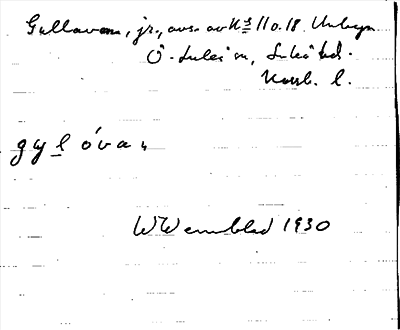 Gullavan, jr., avs. av N:s 11 o. 18. Unbyn
Ö. Luleå sn, Luleå td.
Norrb. l.
gyl óvan
WWennblad 1930